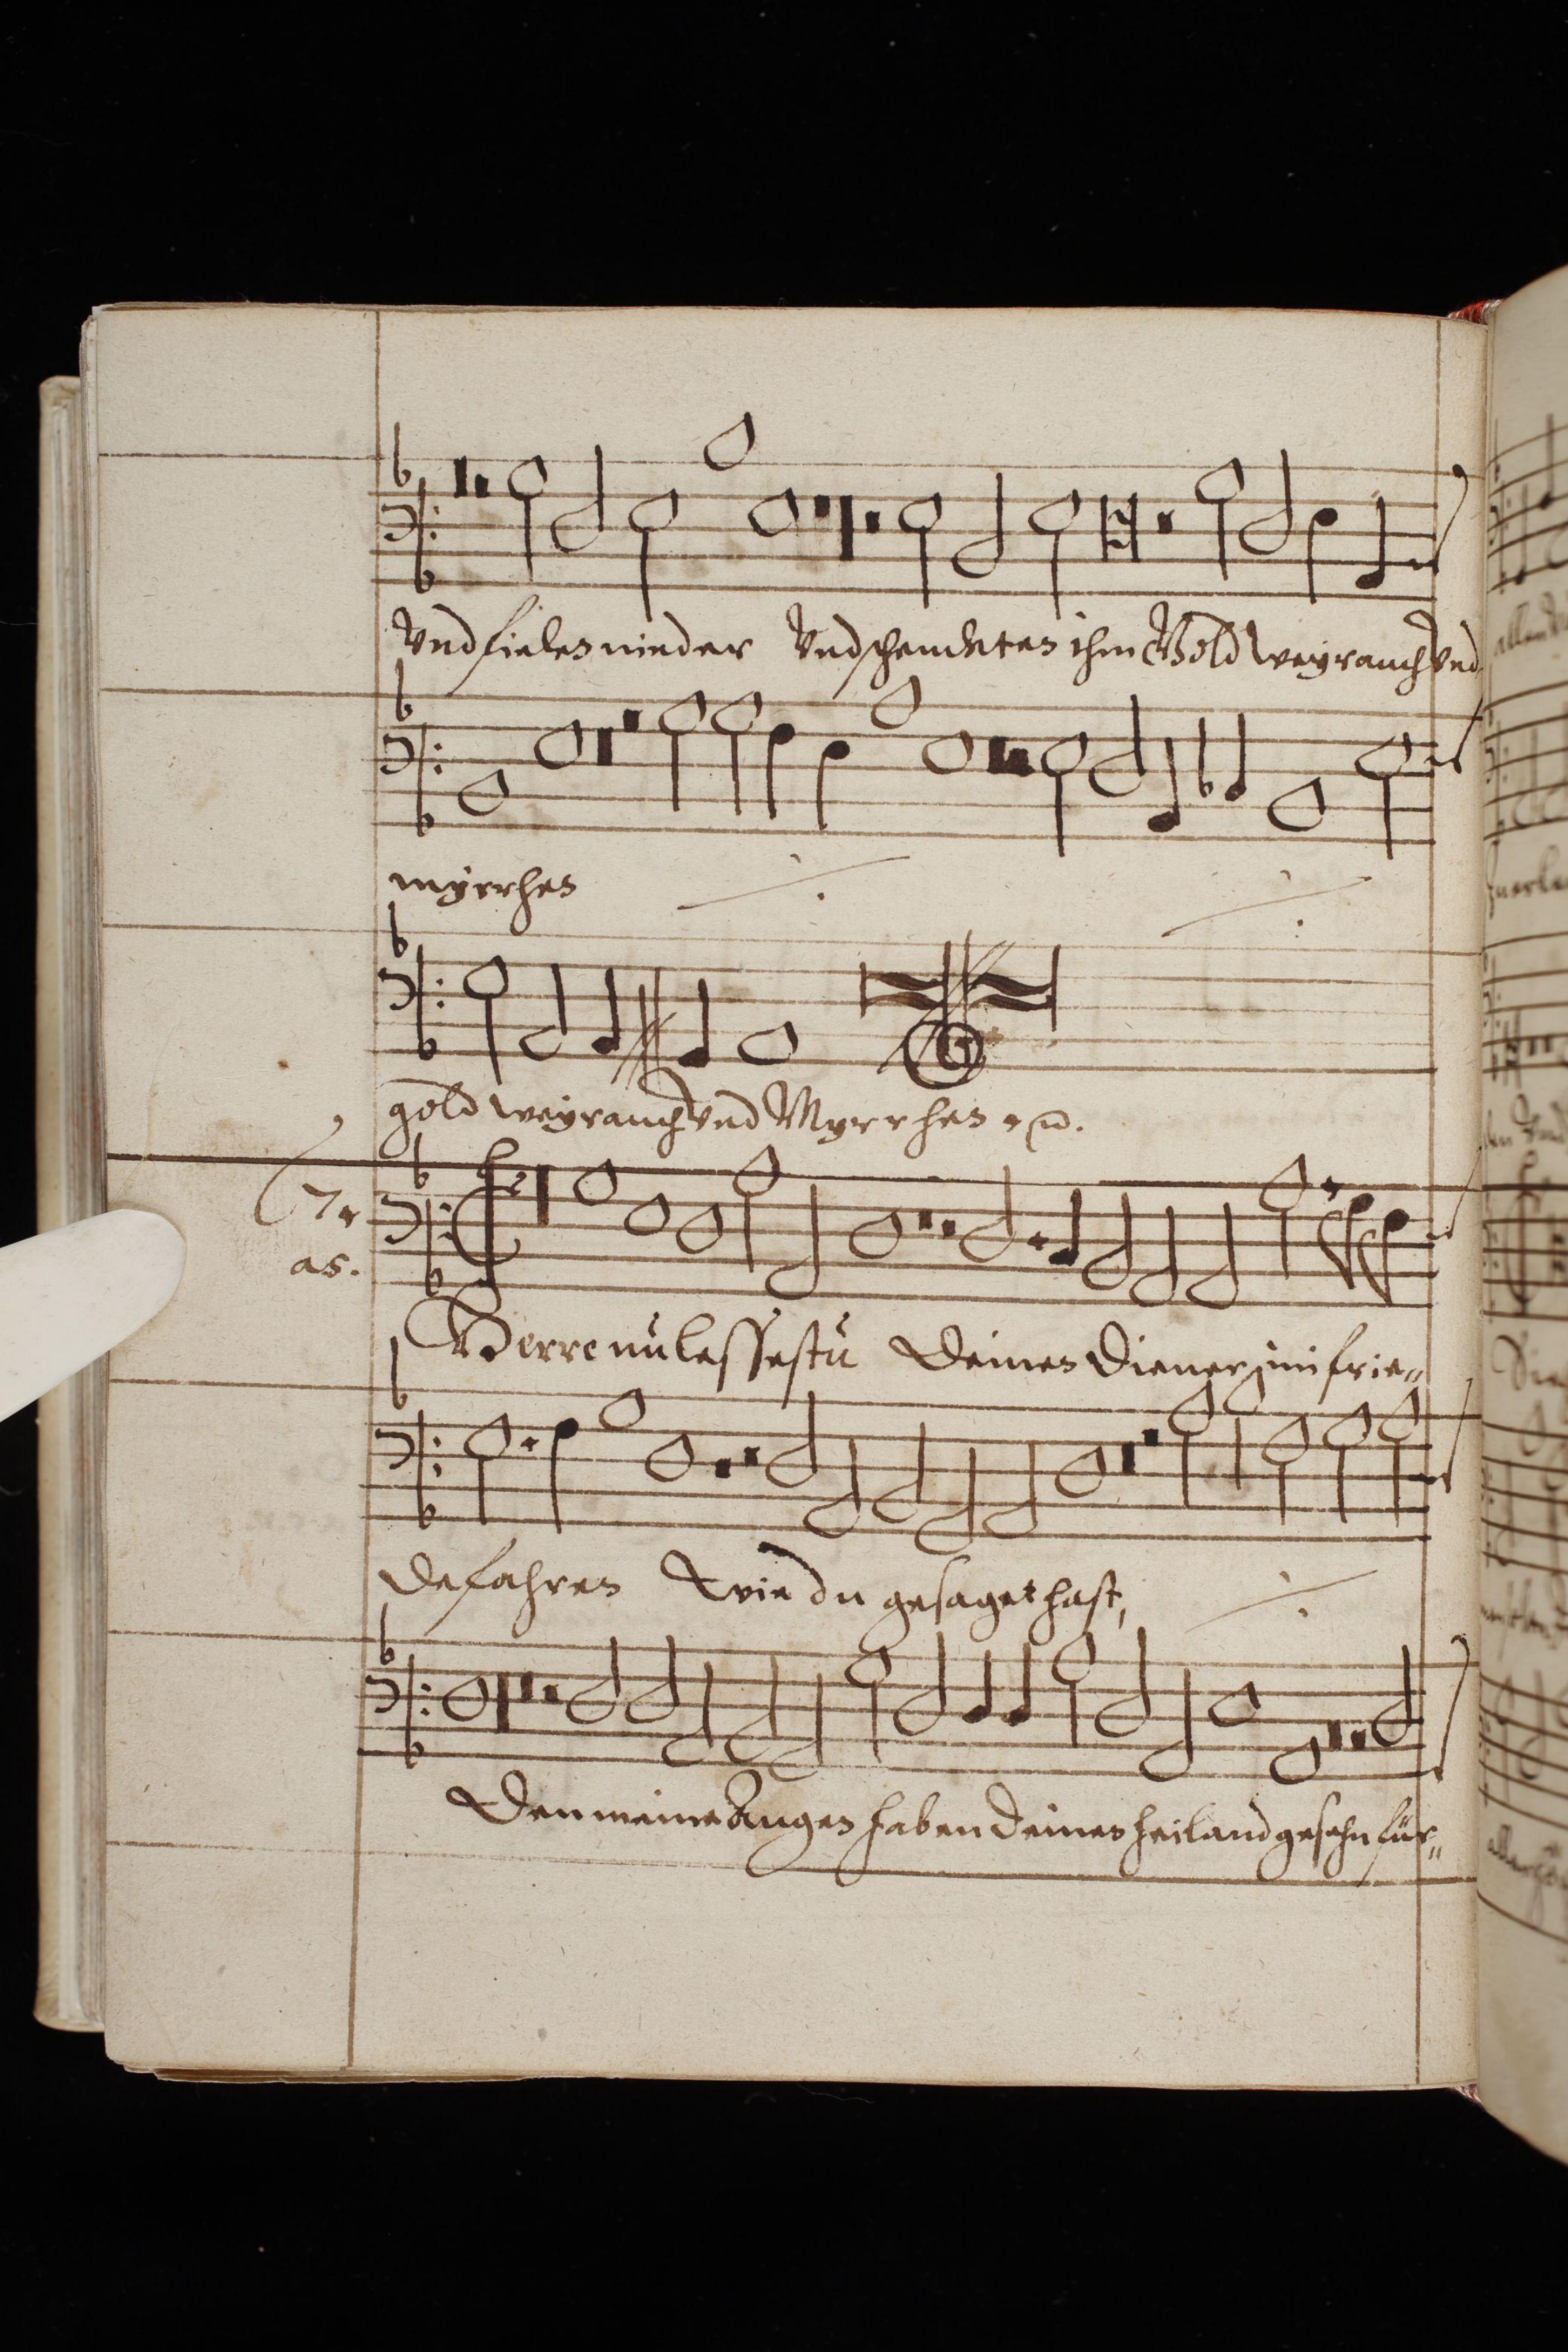 Vnd fielen nieder Vnd schenckten ihm Gold weyrauch Vnd
myrrhen
gold weyrauch Vnd Myrrhen
7.
as.
Herre nu lessestu Deinen Diener im frie„
de fahren Wie du gesaget hast,
Den meine Augen haben deinen heiland gesehn für„